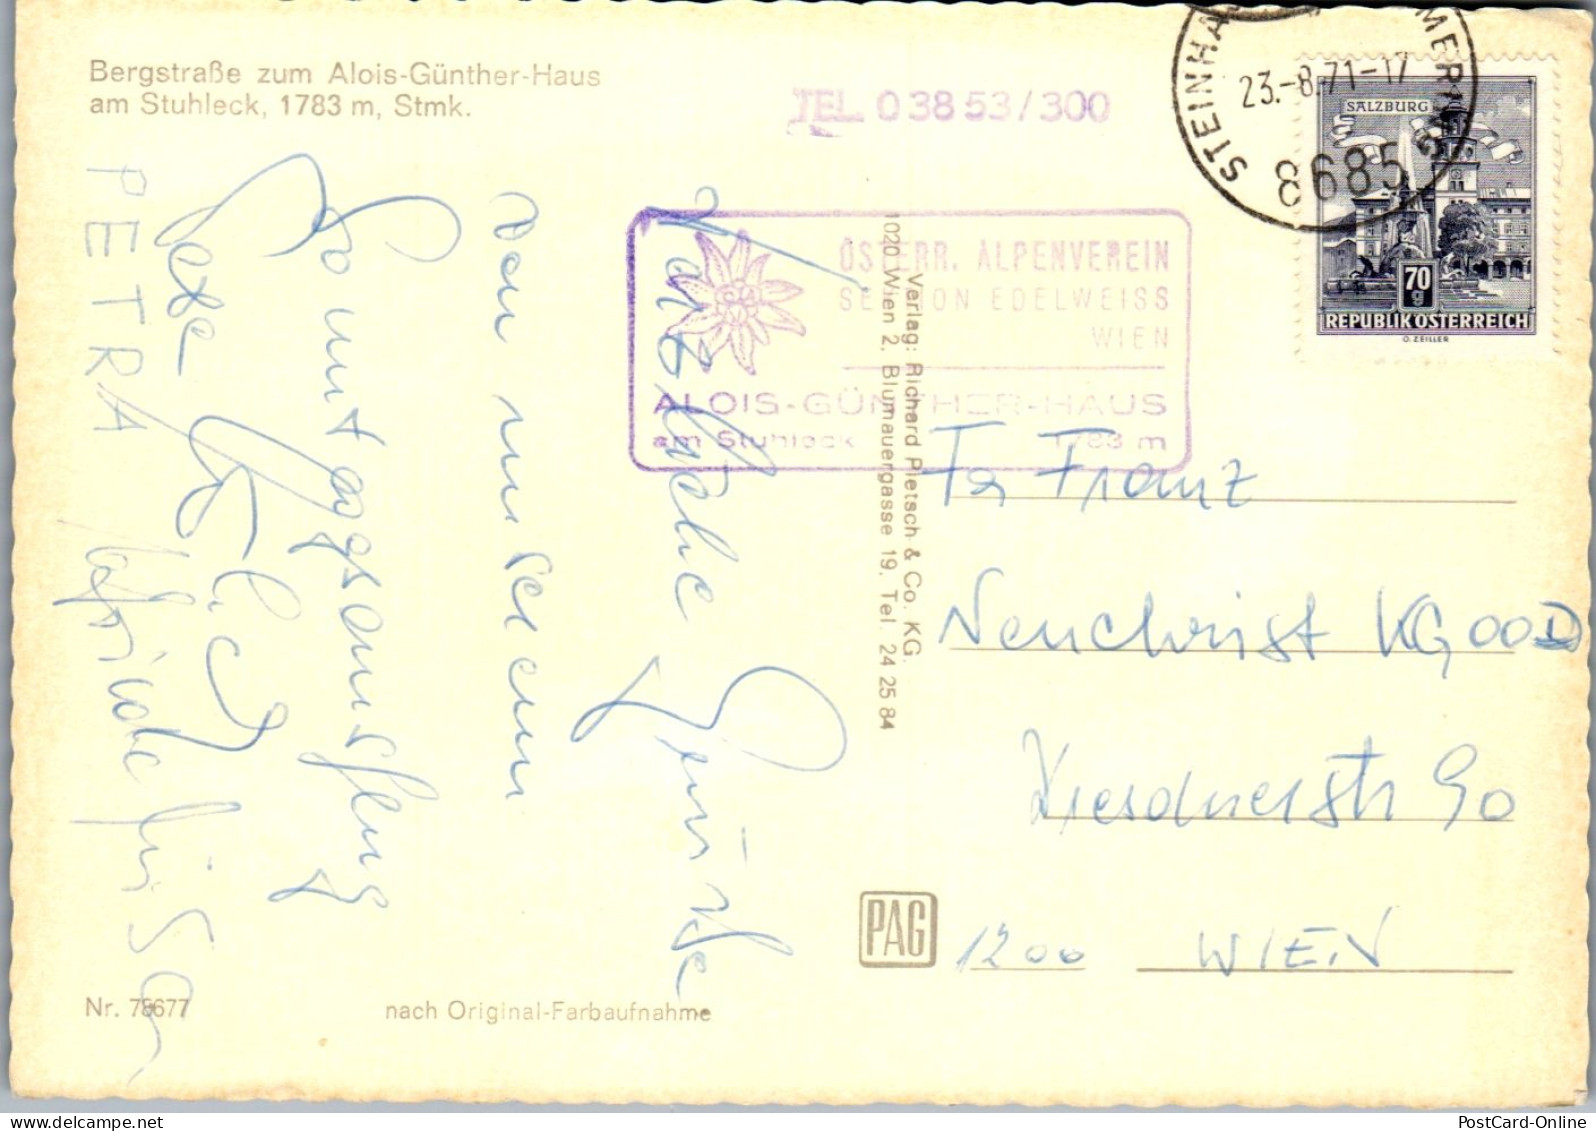 Bergstraße zum Alois-Günther-Haus
am Stuhleck, 1783 m, Stmk.
TEL. 03853/300
STEINHA MERING
23.-8.71-17
8685
SALZBURG
70
g
REPUBLIK ÖSTERREICH
O. ZEILLER
ÖSTERR. ALPENVEREIN
SEKTION EDELWEISS
WIEN
ALOIS-GÜNTHER-HAUS
am Stuhleck 1783 m
Verlag: Richard Pietsch & Co. KG.
1020 Wien 2, Blumauergasse 19, Tel. 24 25 84
Herzliche Grüße
von unserem
Sonntagsausflug
PETRA
Fa Franz
Neuchrist KG OOD
Dresdnerstr 90
1200 WIEN
PAG
Nr. 78677
nach Original-Farbaufnahme
PostCard-Online